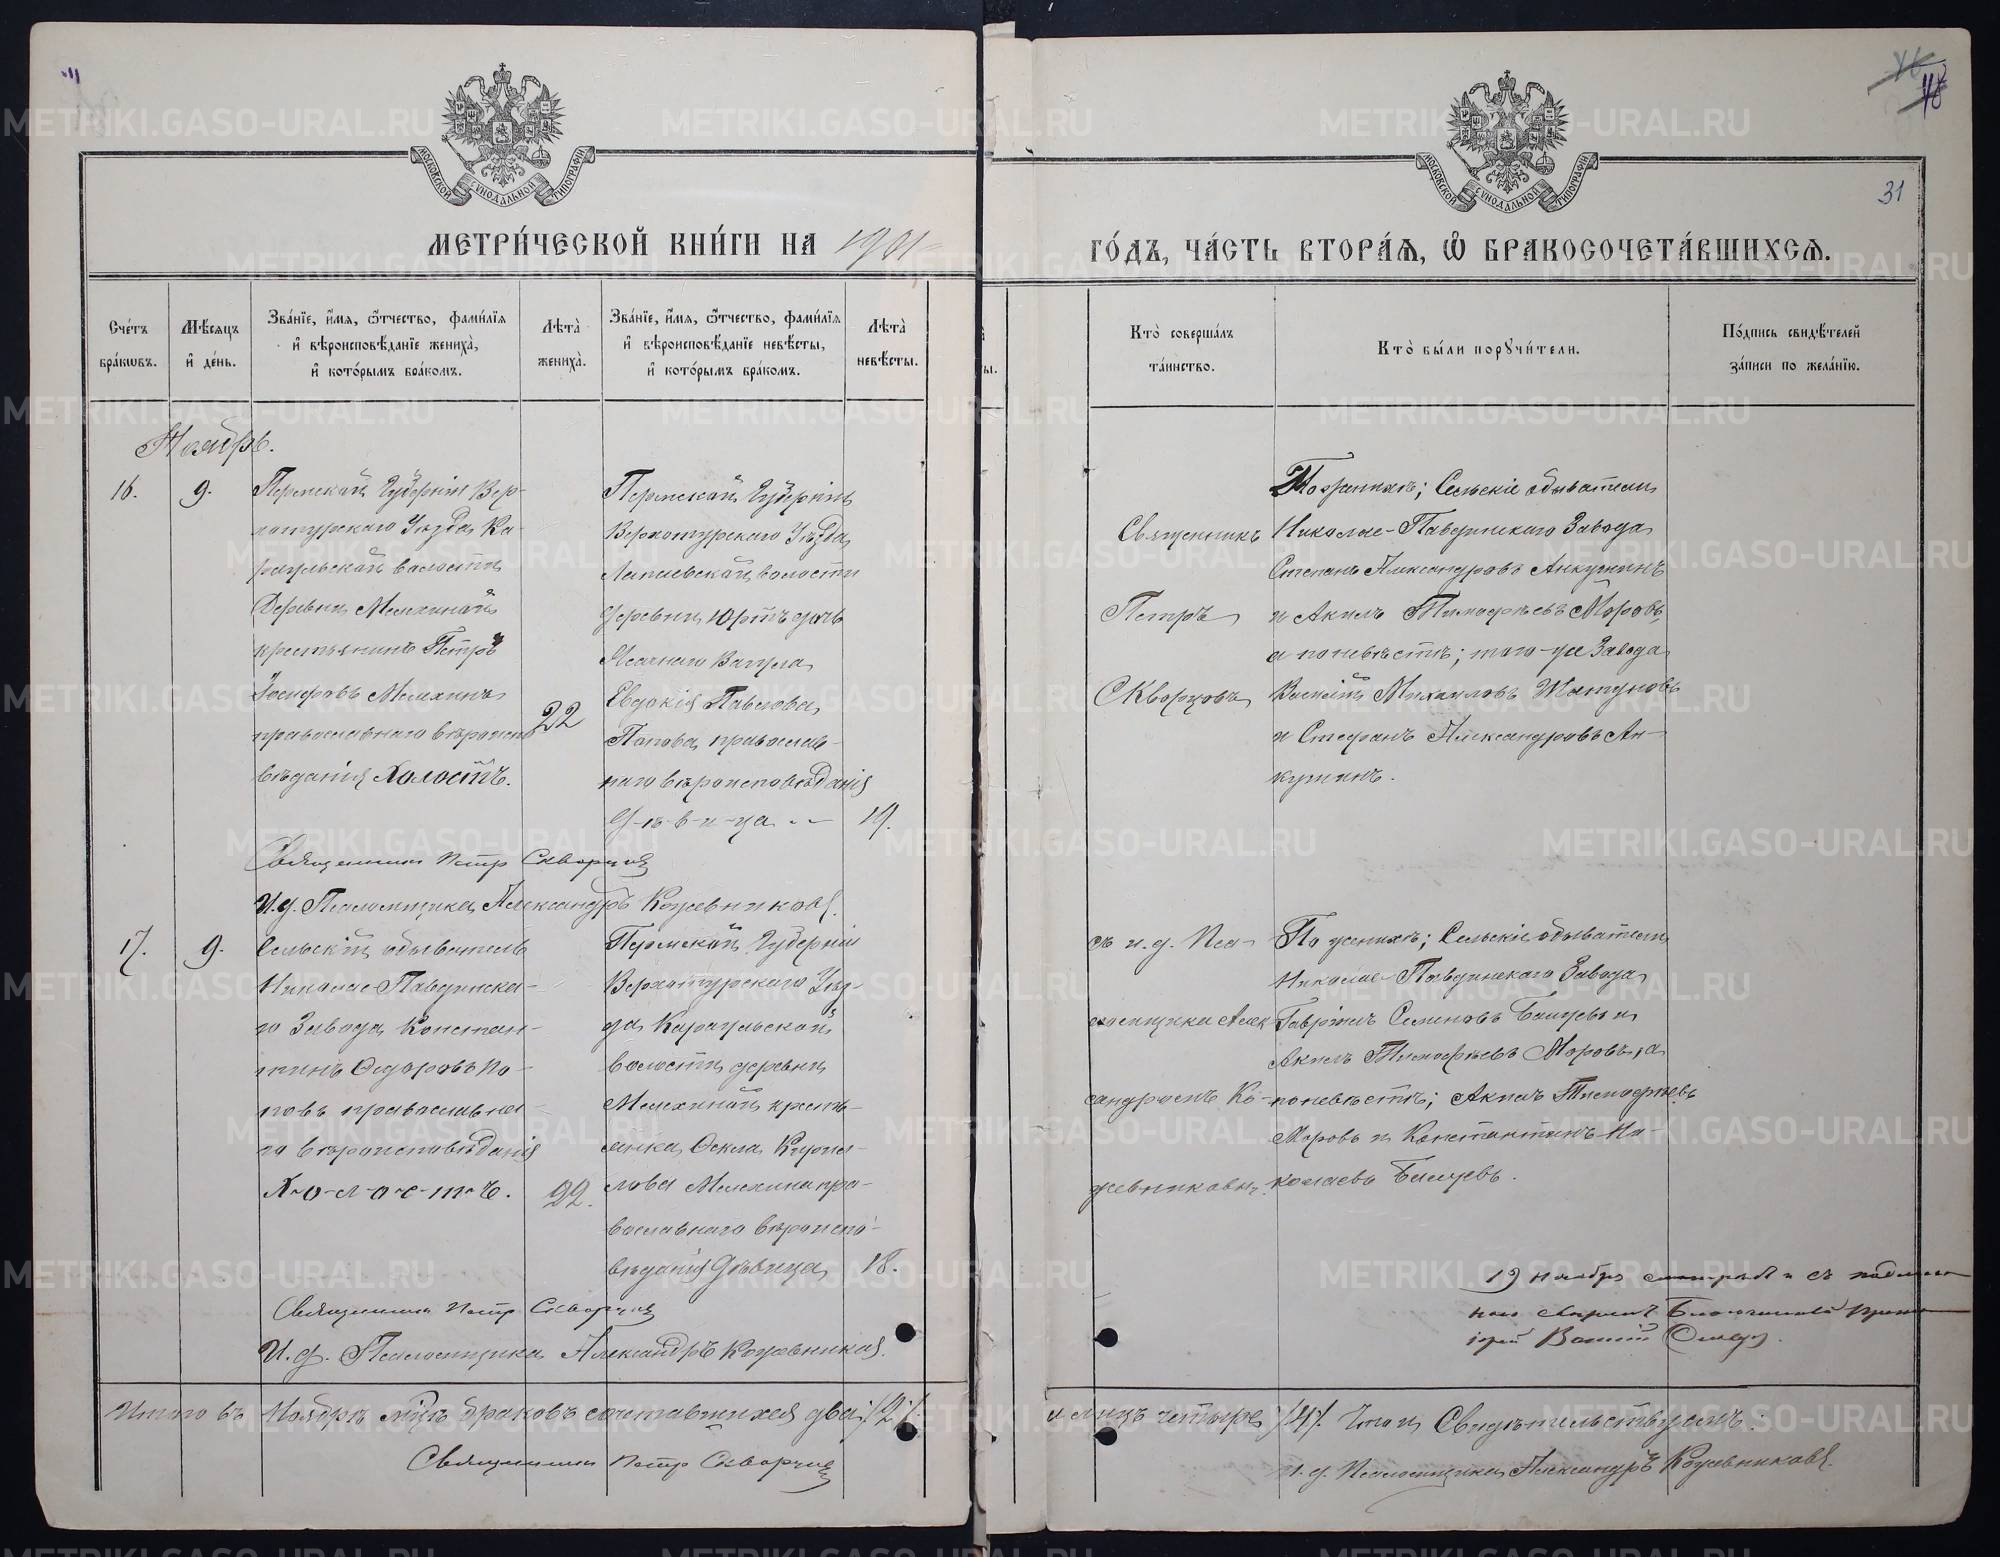 МОСКОВСКОЙ СѴНОДАЛЬНОЙ ТИПОГРАФІИ
МОСКОВСКОЙ СѴНОДАЛЬНОЙ ТИПОГРАФІИ
31
МЕТРИ́ЧЕСКОЙ КНИ́ГИ НА 1901
ГО́ДЪ, ЧА́СТЬ ВТОРА́Ѧ, Ѽ БРАКОСОЧЕТА́ВШИХСѦ.
Сче́тъ бра́кωвъ.
Мѣ́сѧцъ и҆ де́нь.
Зва́нїе, и҆́мѧ, ѻ҆́тчество, фами́лїѧ
и҆ вѣроисповѣ́данїе жениха̀,
и҆ кото́рымъ бра́комъ.
Лѣта̀ жениха̀.
Зва́нїе, и҆́мѧ, ѻ҆́тчество, фами́лїѧ
и҆ вѣроисповѣ́данїе невѣ́сты,
и҆ кото́рымъ бра́комъ.
Лѣта̀ невѣ́сты.
Кто̀ соверша́лъ та́инство.
Кто̀ бы́ли порꙋчи́тели.
По́дпись свидѣ́телей
за́писи по жела́нїю.
Ноябрь.
16.
9.
Пермской Губерніи Вер-
хотурскаго Уѣзда Ка-
раульской волости
Деревни Мелехиной
крестьянинъ Петръ
Іосифовъ Мелехинъ
православнаго вѣроиспо
вѣданія Холостъ.
22
Пермской Губерніи
Верхотурскаго Уѣзда
Лялинской волости
деревни Юртъ дочь
Ясачнаго Вагула
Евдокія Павлова
Попова, православ-
наго вѣроисповѣданія
д-ѣ-в-и-ца
19.
Священникъ
Петръ
Скворцовъ
По женихѣ; Сельскіе обыватели
Николае-Павдинскаго Завода
Степанъ Александровъ Анкушинъ
и Акилъ Тимофѣевъ Моровъ,
а по невѣстѣ; того-же Завода
Василій Михаиловъ Шатуновъ
и Стефанъ Александровъ Ан-
кушинъ.
Священникъ Петр Скворцов
И.д. Псаломщика Александръ Кожевниковъ.
17.
9.
Сельскій обыватель
Николае-Павдинска-
го Завода Констан-
тинъ Ѳедоровъ По-
повъ православна-
го вѣроисповѣданія
Х-о-л-о-с-т-ъ.
22.
Пермской Губерніи
Верхотурскаго Уѣз-
да Караульской
волости деревни
Мелехиной кресть-
янка Ѳекла Кирил-
лова Мелехина пра-
вославнаго вѣроиспо-
вѣданія дѣвица
18.
съ и.д. Пса-
ломщика Алек
сандромъ Ко-
жевниковымъ.
По женихѣ; Сельскіе обыватели
Николае-Павдинскаго Завода
Гавріилъ Семеновъ Балуевъ и
Акилъ Тимофѣевъ Моровъ, а
по невѣстѣ; Акилъ Тимофѣевъ
Моровъ и Константинъ Ни-
колаевъ Балуевъ.
Священникъ Петр Скворцов
И.д. Псаломщика Александръ Кожевниковъ.
19 ноября
Итого въ Ноябрѣ мцѣ браковъ сочетавшихся два /2/.
а лицъ четыре /4/. Что и Свидѣтельствуемъ:
Священникъ Петр Скворцов
И.д. Псаломщика Александръ Кожевниковъ.
METRIKI.GASO-URAL.RU